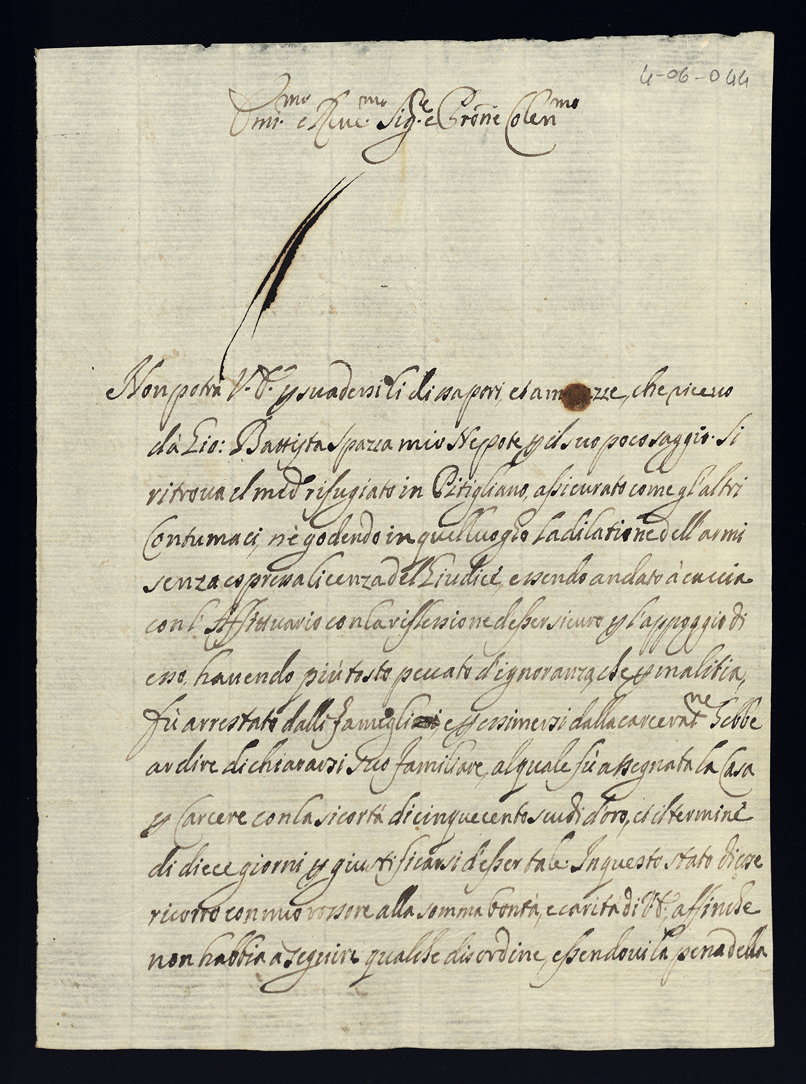 4-06-044
Emi.mo e Reve.mo Sig.re e Prõne Colen.mo
Non potrà V. E. p suadersi li dissapori, et am zze, che ricevo
dà Gio: Battista Spazza mio Nepote p il suo poco saggio. Si
ritrova el med. rifugiato in Pitigliano, assicurato come gl'altri
Contumaci, nè godendo in quell luogo la dilatione dell'armi
senza espressa licenza del Giudice, essendo andato à caccia
con l'Affittuario con la riflessione d'esser sicuro p l'appoggio di
esso, havendo più tosto peccato d'ignoranza, che p malitia,
fù arrestato dalli famegli e p essimersi dalla carcerat.ne hebbe
ardire dichiararsi suo familiare, al quale fù assegnata la Casa
p Carcere con la sicortà di cinquecento scudi d'oro, et il termine
di diece giorni p giustificarsi d'esser tale. In questo stato di cose
ricorro con mio rossore alla somma bontà, e carità di V. E., affinche
non habbia à seguire qualche disordine, essendovi la pena della